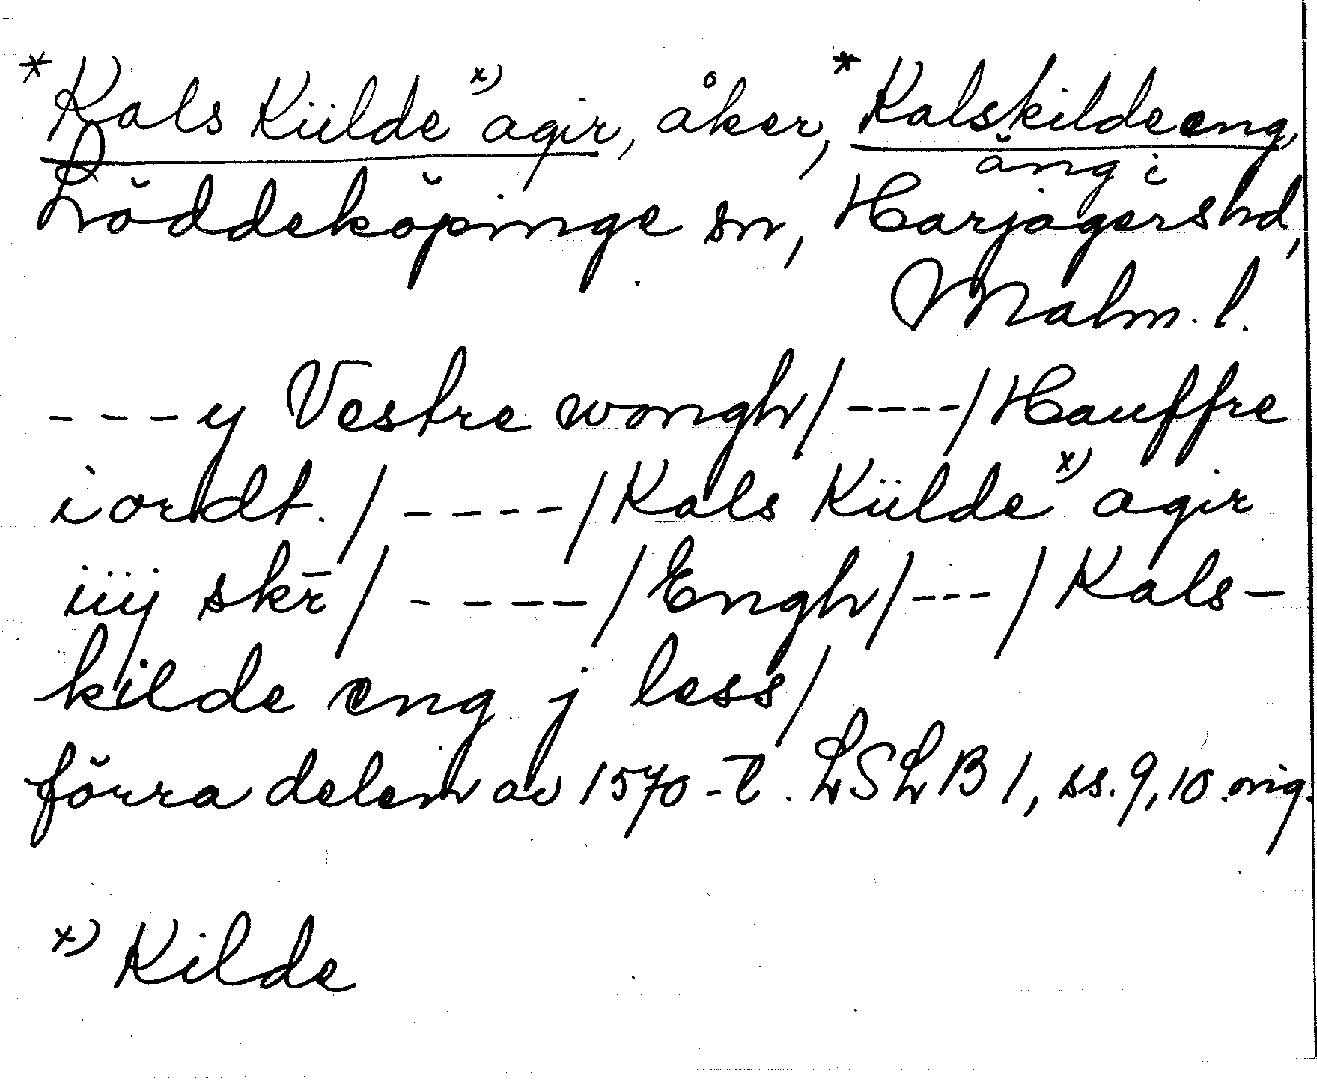 *Kals Külde x) agir, åker, *Kalskildeeng,
äng i
Löddeköpinge sn, Harjagers hd,
Malm. l.
- - - y Vestre wongh/ - - - -/ Hauffre
iordt. / - - - - / Kals Külde x) agir
iiij skr̄ / - - - - / Engh/ - - - / Kals-
kilde eng j less/
förra delen av 1570-t. LSLB 1, ss. 9, 10 orig.
x) Kilde